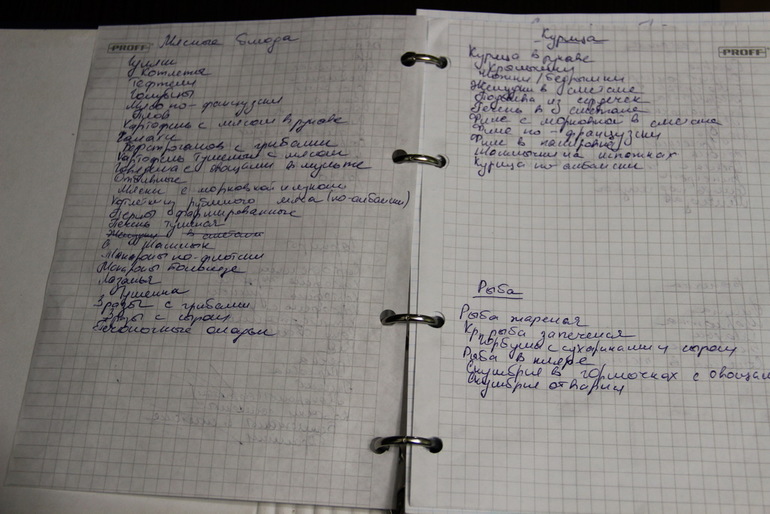 PROFF
Мясные блюда
Гуляш
Котлеты
Тефтели
Голубцы
Мясо по-французки
Плов
Картофель с мясом в рукаве
с грибами
Картофель тушеный с мясом
с овощами в мульте
Отбивные
с морковкой и луком
Котлетки из рубленого мяса (по-албански)
Перцы фаршированные
Печень тушеная
в сметане
Шашлык
Макароны по-флотски
Макароны болоньезе
Лазанья
Тушенка
Зразы с грибами
Зразы с сыром
Печеночные оладьи
Курица
PROFF
Курица в рукаве
Крылышки
Ножки/Бедрышки
Желудки в сметане
Подлива из сердечек
Печень в сметане
Филе с морковкой в сметане
Филе по-французки
Филе в панировке
Шашлычки на шпажках
Курица по-албански
Рыба
Рыба жареная
Кр. рыба запеченая
Горбуша с сухариками и сыром
Рыба в кляре
Скумбрия в горшочках с овощам
Скумбрия отварная